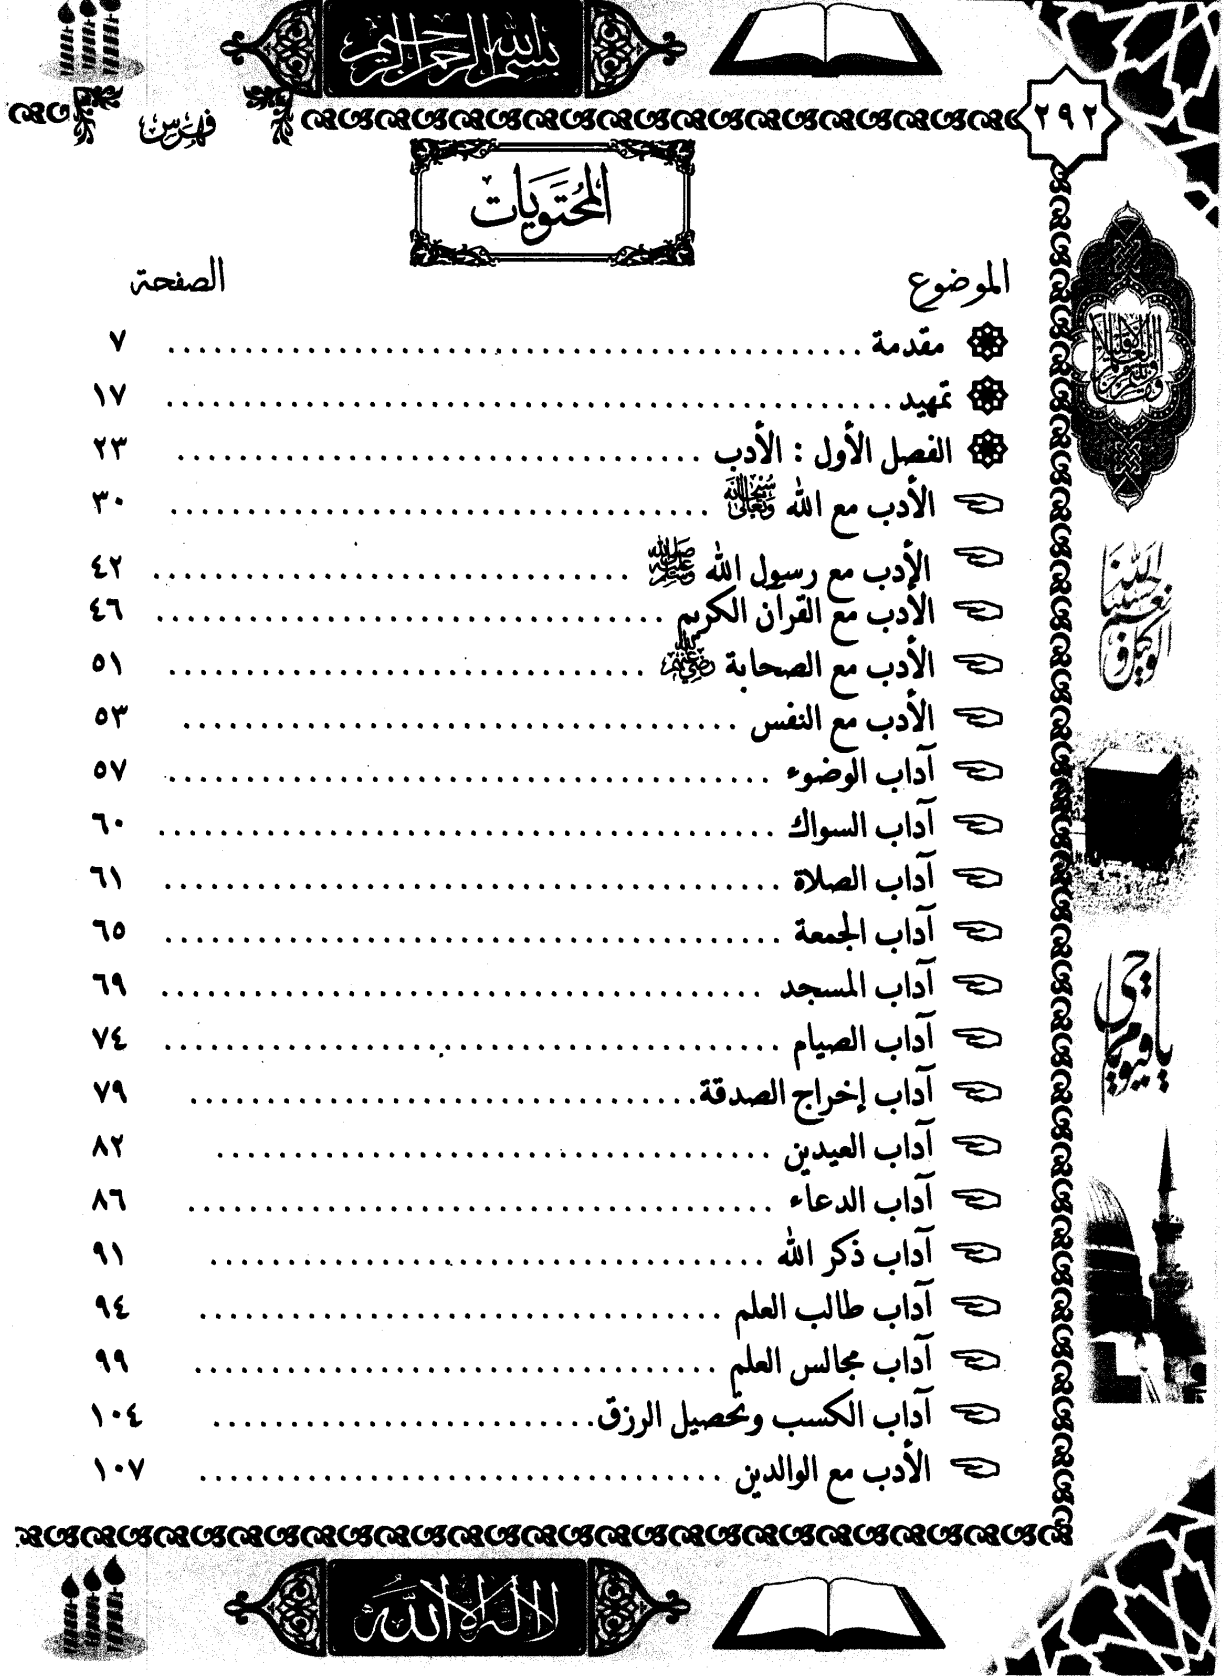 بسم الله الرحمن الرحيم
٢٩٢
فهرس
المحتويات
الموضوع الصفحة
مقدمة ........ ٧
تمهيد ........ ١٧
الفصل الأول : الأدب ........ ٢٣
الأدب مع الله سبحانه وتعالى ........ ٣٠
الأدب مع رسول الله صلى الله عليه وسلم ........ ٤٢
الأدب مع القرآن الكريم ........ ٤٦
الأدب مع الصحابة رضي الله عنهم ........ ٥١
الأدب مع النفس ........ ٥٣
آداب الوضوء ........ ٥٧
آداب السواك ........ ٦٠
آداب الصلاة ........ ٦١
آداب الجمعة ........ ٦٥
آداب المسجد ........ ٦٩
آداب الصيام ........ ٧٤
آداب إخراج الصدقة ........ ٧٩
آداب العيدين ........ ٨٢
آداب الدعاء ........ ٨٦
آداب ذكر الله ........ ٩١
آداب طالب العلم ........ ٩٤
آداب مجالس العلم ........ ٩٩
آداب الكسب وتحصيل الرزق ........ ١٠٤
الأدب مع الوالدين ........ ١٠٧
حسبنا الله ونعم الوكيل
يا حي يا قيوم
لا إله إلا الله